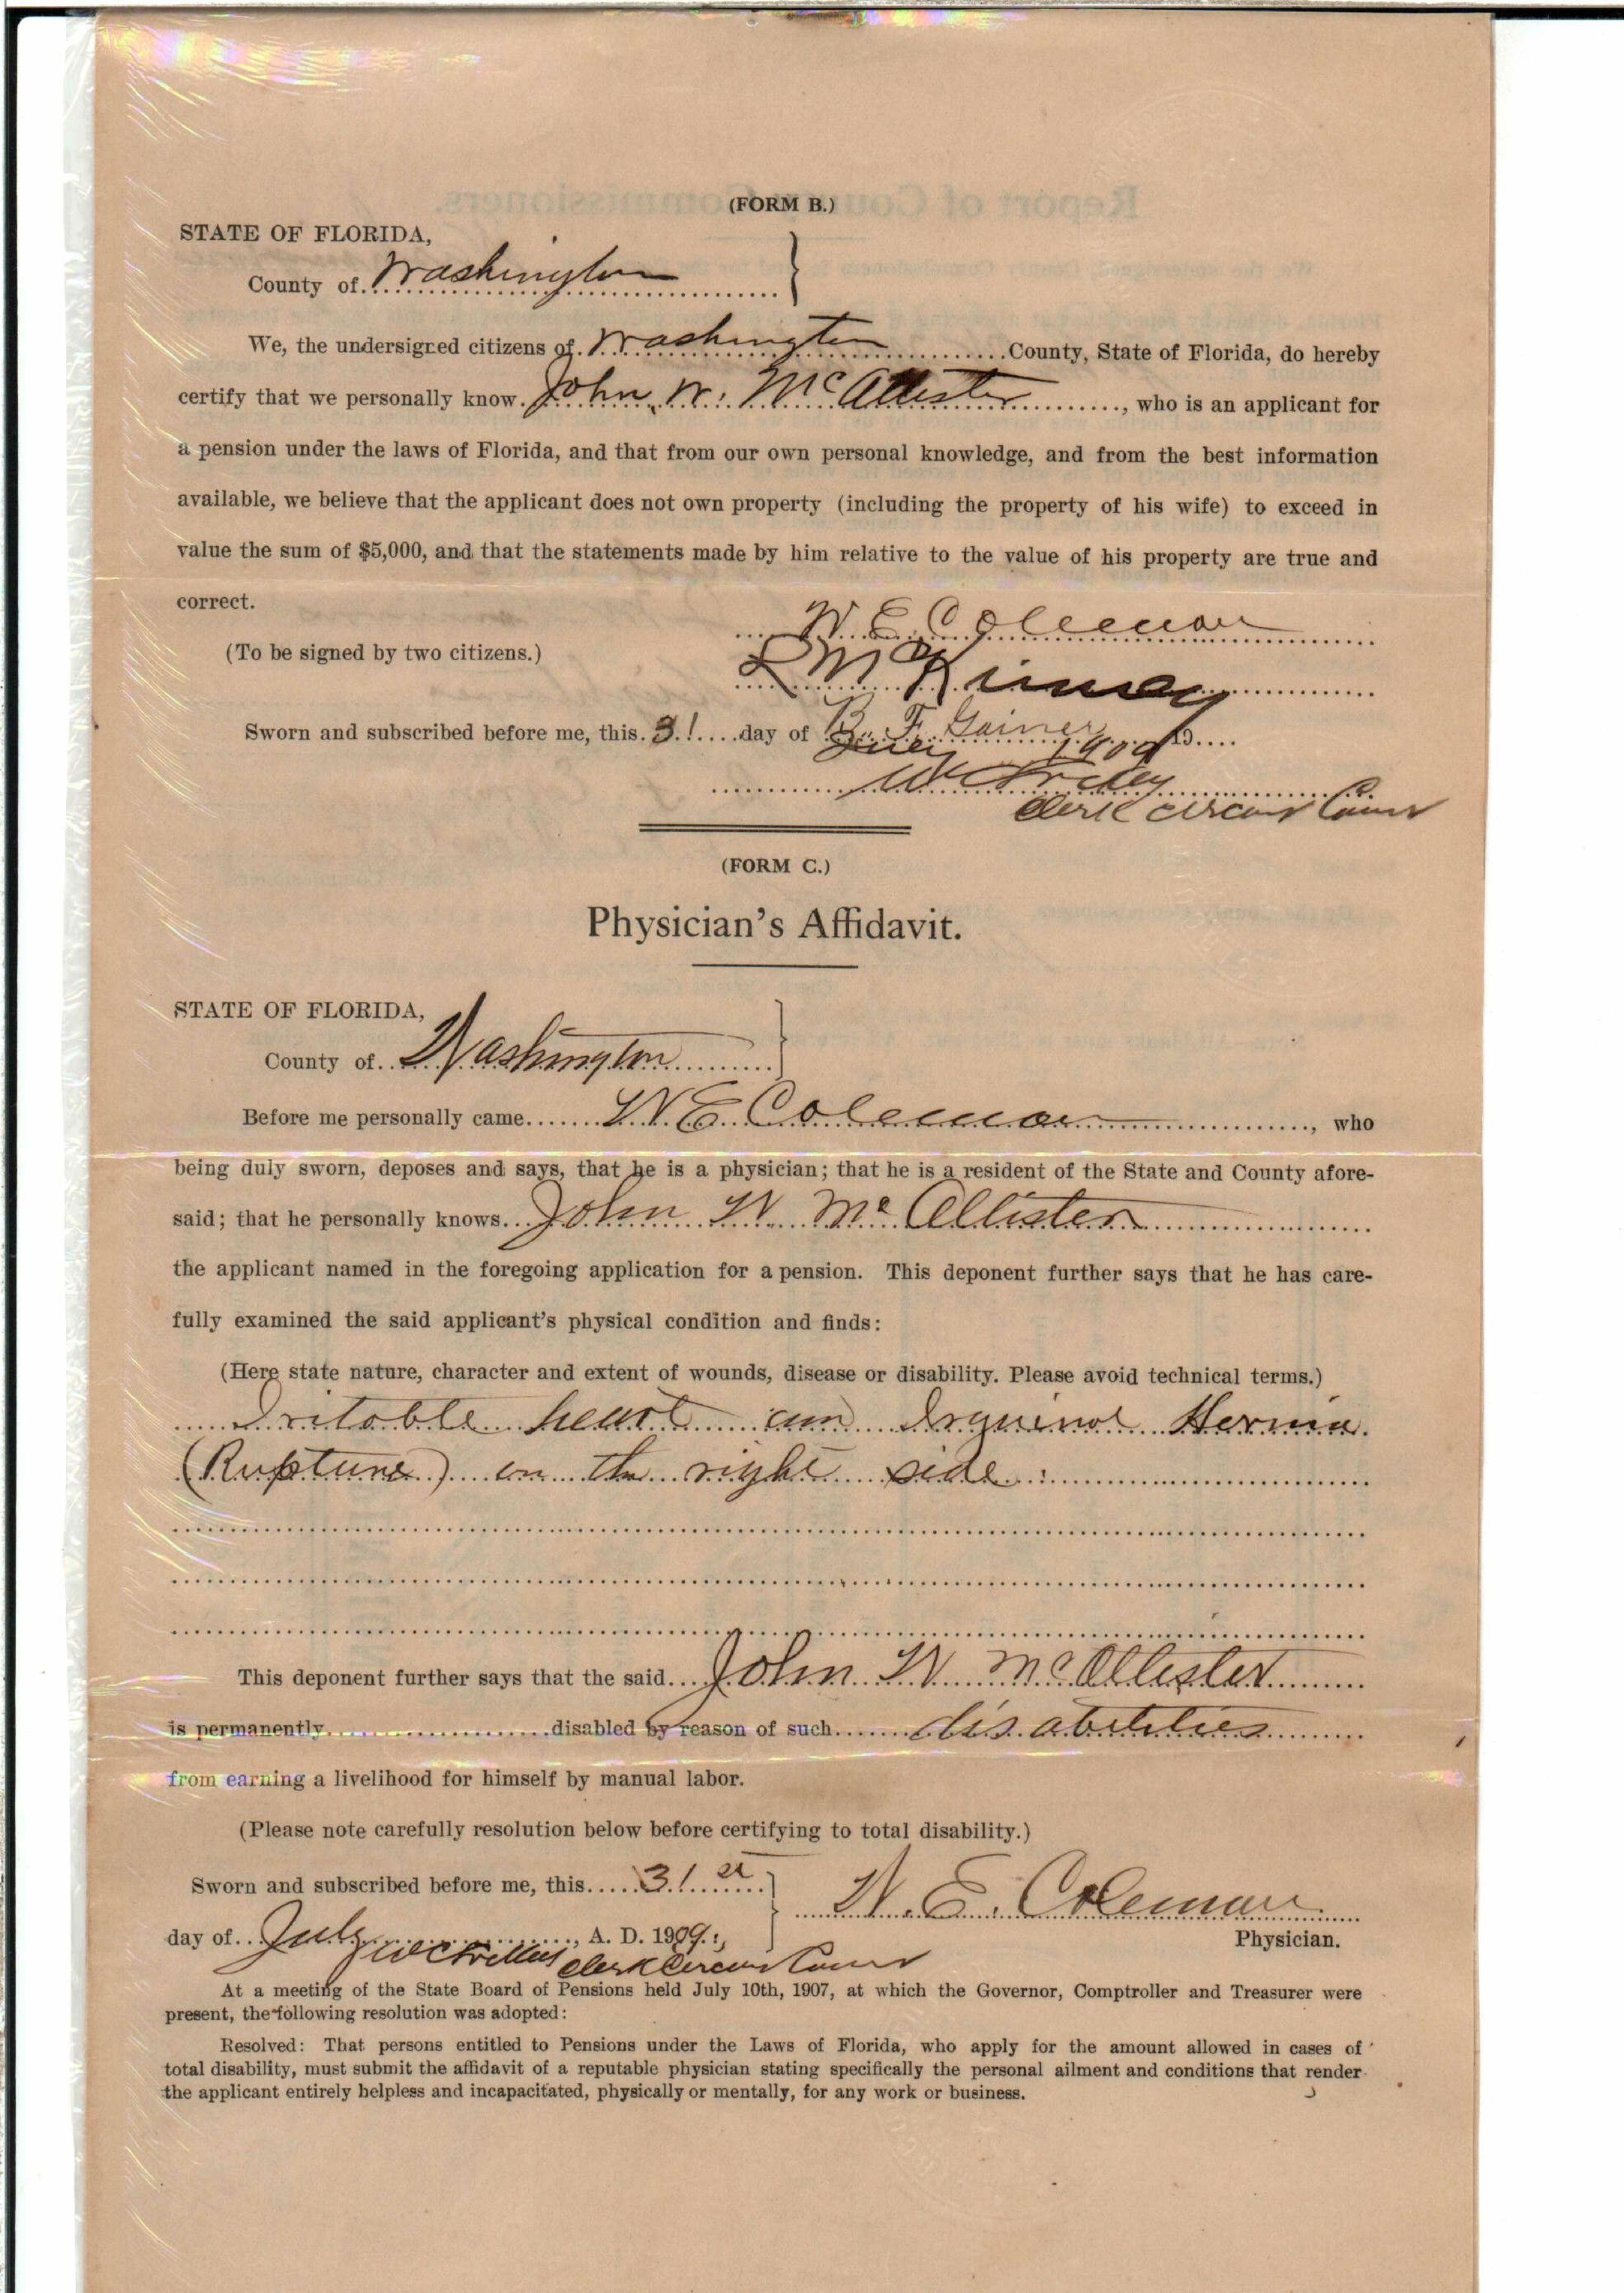 (FORM B.)
STATE OF FLORIDA,
County of Washington
We, the undersigned citizens of Washington County, State of Florida, do hereby
certify that we personally know John W. McAllister, who is an applicant for
a pension under the laws of Florida, and that from our own personal knowledge, and from the best information
available, we believe that the applicant does not own property (including the property of his wife) to exceed in
value the sum of $5,000, and that the statements made by him relative to the value of his property are true and
correct.
W E Coleman
(To be signed by two citizens.)
McKinney
B. F. Gainer
Sworn and subscribed before me, this 31 day of July 1909 19
Clerk Circuit Court
(FORM C.)
Physician's Affidavit.
STATE OF FLORIDA,
County of Washington
Before me personally came W E Coleman, who
being duly sworn, deposes and says, that he is a physician; that he is a resident of the State and County afore-
said; that he personally knows John W McAllister
the applicant named in the foregoing application for a pension. This deponent further says that he has care-
fully examined the said applicant's physical condition and finds:
(Here state nature, character and extent of wounds, disease or disability. Please avoid technical terms.)
Iritable heart an Inguinal Hernia
(Rupture) on the right side.
This deponent further says that the said John W McAllister
is permanently disabled by reason of such disabilities
from earning a livelihood for himself by manual labor.
(Please note carefully resolution below before certifying to total disability.)
Sworn and subscribed before me, this 31st
W. E. Coleman
day of July, A. D. 1909.
Physician.
Clerk Circuit Court
At a meeting of the State Board of Pensions held July 10th, 1907, at which the Governor, Comptroller and Treasurer were
present, the following resolution was adopted:
Resolved: That persons entitled to Pensions under the Laws of Florida, who apply for the amount allowed in cases of
total disability, must submit the affidavit of a reputable physician stating specifically the personal ailment and conditions that render
the applicant entirely helpless and incapacitated, physically or mentally, for any work or business.